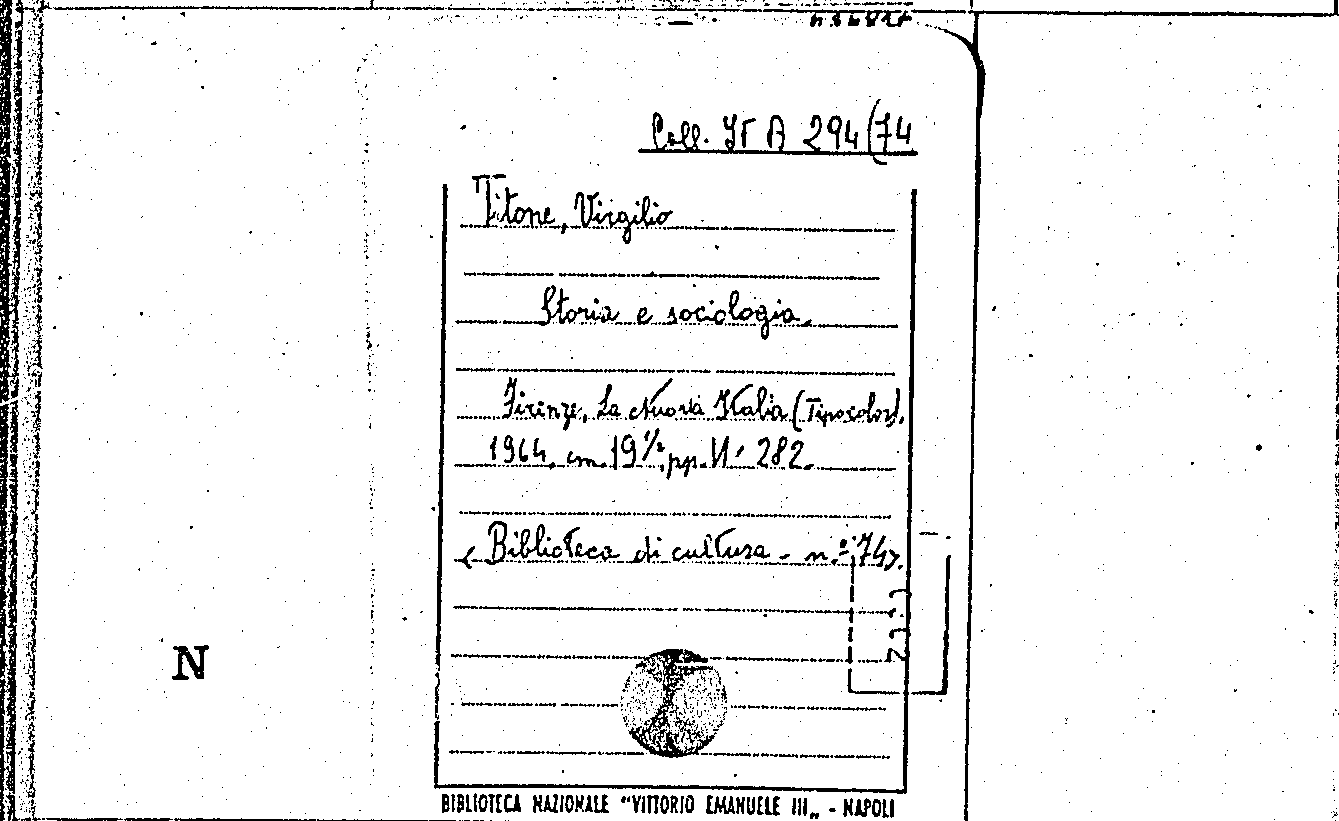 Coll. IT A 294(74
Titone, Virgilio
Storia e sociologia.
Firenze, La Nuova Italia (Tipocolor),
1964, cm. 19 1/2, pp. 282.
«Biblioteca di cultura - n.º 74».
N
BIBLIOTECA NAZIONALE "VITTORIO EMANUELE III„ - NAPOLI